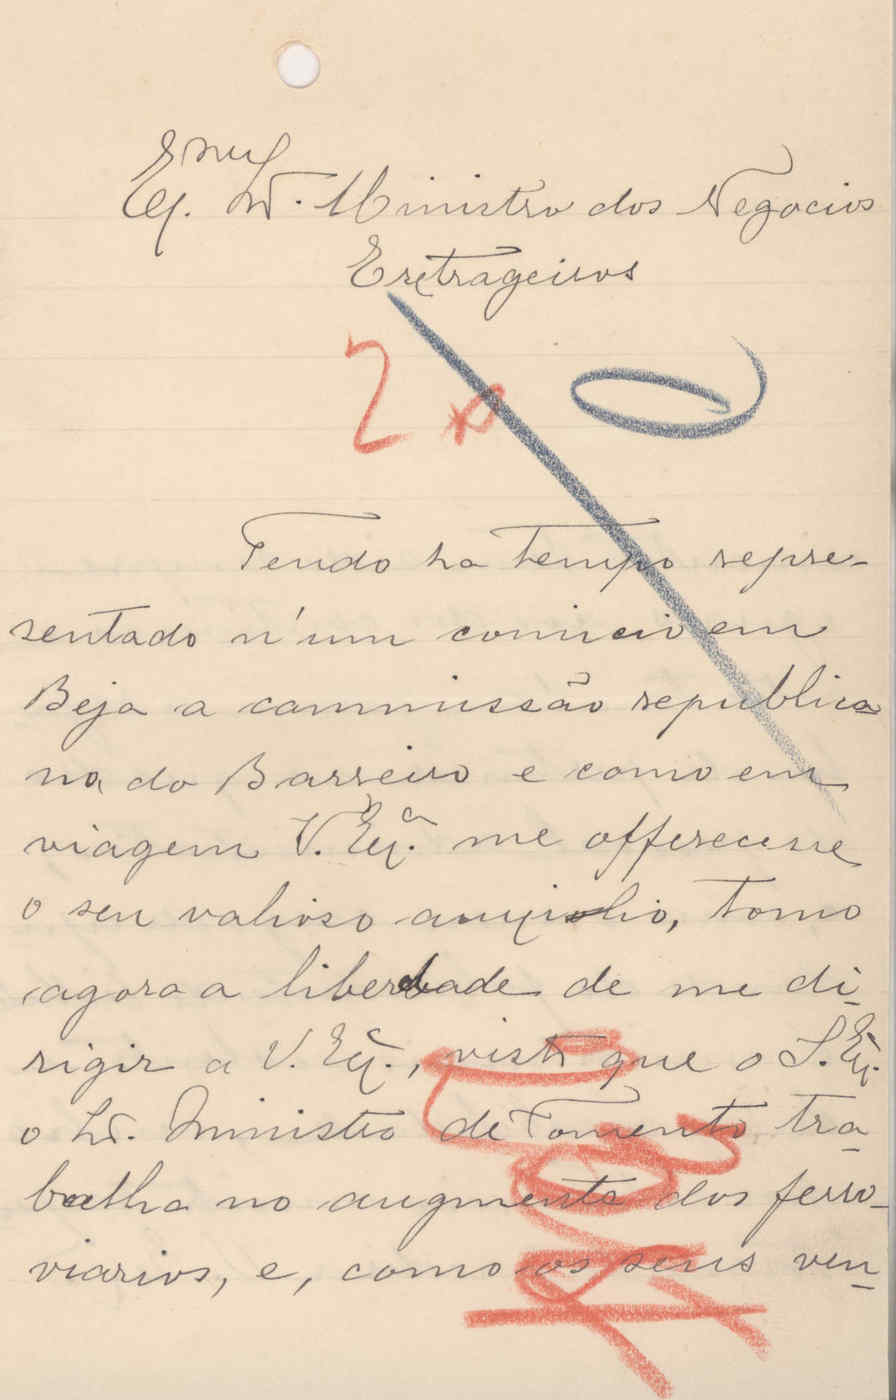 Exmº
Ex. Sr. Ministro dos Negocios
Extrageiros
2
Tendo ha tempo repre-
sentado n'um comicio em
Beja a commissão republica
na do Barreiro e como em
viagem V. Exª. me offerecesse
o seu valioso auxilio, tomo
agora a liberdade de me di-
rigir a V. Exª., visto que o S. Exª.
o Sr. Ministro de Fomento tra-
balha no augmento dos ferro-
viarios, e, como os seus ven-